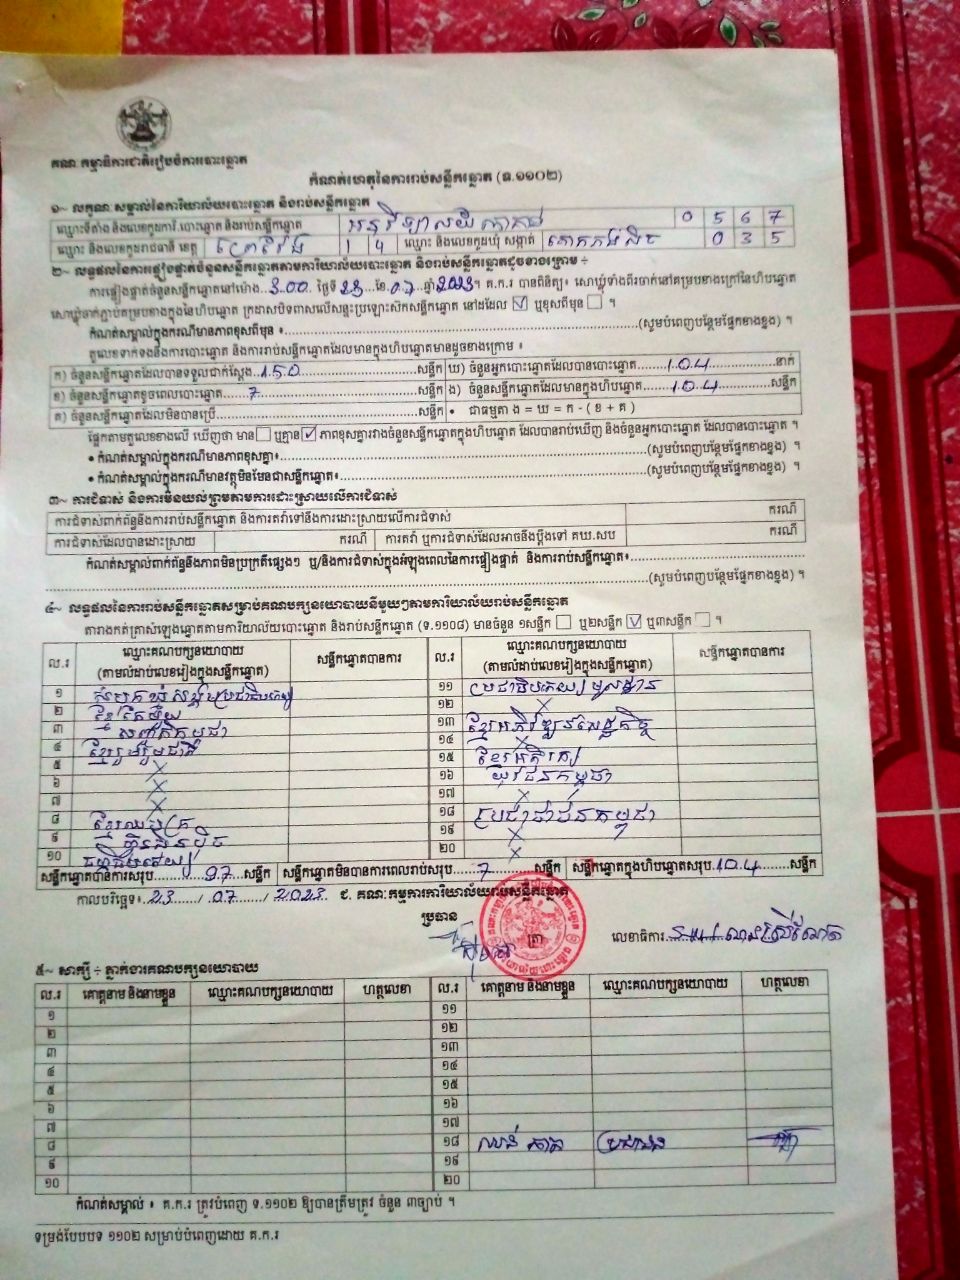 គណៈកម្មាធិការជាតិរៀបចំការបោះឆ្នោត
កំណត់ហេតុនៃការរាប់សន្លឹកឆ្នោត (ទ.១១០២)
១~ លក្ខណៈសម្គាល់នៃការិយាល័យបោះឆ្នោត និងរាប់សន្លឹកឆ្នោត
ឈ្មោះទីតាំង និងលេខកូដការិ.បោះឆ្នោត និងរាប់សន្លឹកឆ្នោត អនុវិទ្យាល័យ 0 5 6 7
ឈ្មោះ និងលេខកូដរាជធានី ខេត្ត ព្រៃវែង 1 4 ឈ្មោះ និងលេខកូដឃុំ សង្កាត់ 0 3 5
២~ លទ្ធផលនៃការផ្ទៀងផ្ទាត់ចំនួនសន្លឹកឆ្នោតតាមការិយាល័យបោះឆ្នោត និងរាប់សន្លឹកឆ្នោតដូចខាងក្រោម ÷
ការផ្ទៀងផ្ទាត់ចំនួនសន្លឹកឆ្នោតនៅម៉ោង 3.00 ថ្ងៃទី 23 ខែ 07 ឆ្នាំ 2023។ គ.ក.រ បានពិនិត្យ៖ សោឃ្លុំទាំងពីរចាក់នៅគម្របខាងក្រៅនៃហិបឆ្នោត
សោឃ្លុំចាក់ភ្ជាប់គម្របខាងក្នុងនៃហិបឆ្នោត ក្រដាសបិទពាសលើសន្ទះប្រឡោះស៊កសន្លឹកឆ្នោត នៅដដែល ☑ ឬខុសពីមុន ☐ ។
កំណត់សម្គាល់ក្នុងករណីមានភាពខុសពីមុន ៖ (សូមបំពេញបន្ថែមផ្នែកខាងខ្នង) ។
តួលេខទាក់ទងនឹងការបោះឆ្នោត និងការរាប់សន្លឹកឆ្នោតដែលមានក្នុងហិបឆ្នោតមានដូចខាងក្រោម ៖
ក) ចំនួនសន្លឹកឆ្នោតដែលបានទទួលជាក់ស្តែង 150 សន្លឹក ឃ) ចំនួនអ្នកបោះឆ្នោតដែលបានបោះឆ្នោត 104 នាក់
ខ) ចំនួនសន្លឹកឆ្នោតខូចពេលបោះឆ្នោត 7 សន្លឹក ង) ចំនួនសន្លឹកឆ្នោតដែលមានក្នុងហិបឆ្នោត 104 សន្លឹក
គ) ចំនួនសន្លឹកឆ្នោតដែលមិនបានប្រើ សន្លឹក • ជាធម្មតា ង = ឃ = ក - ( ខ + គ )
ផ្អែកតាមតួលេខខាងលើ ឃើញថា មាន ☐ ឬគ្មាន ☑ ភាពខុសគ្នារវាងចំនួនសន្លឹកឆ្នោតក្នុងហិបឆ្នោត ដែលបានរាប់ឃើញ និងចំនួនអ្នកបោះឆ្នោត ដែលបានបោះឆ្នោត ។
• កំណត់សម្គាល់ក្នុងករណីមានភាពខុសគ្នា៖ (សូមបំពេញបន្ថែមផ្នែកខាងខ្នង) ។
• កំណត់សម្គាល់ក្នុងករណីមានវត្ថុមិនមែនជាសន្លឹកឆ្នោត៖ (សូមបំពេញបន្ថែមផ្នែកខាងខ្នង) ។
៣~ ការជំទាស់ និងការមិនយល់ព្រមតាមការដោះស្រាយលើការជំទាស់
ការជំទាស់ពាក់ព័ន្ធនឹងការរាប់សន្លឹកឆ្នោត និងការតវ៉ាទៅនឹងការដោះស្រាយលើការជំទាស់ ករណី
ការជំទាស់ដែលបានដោះស្រាយ ករណី ការតវ៉ា ឬការជំទាស់ដែលអាចនឹងប្តឹងទៅ គឃ.សប ករណី
កំណត់សម្គាល់ពាក់ព័ន្ធនឹងភាពមិនប្រក្រតីផ្សេងៗ ឬ/និងការជំទាស់ក្នុងអំឡុងពេលនៃការផ្ទៀងផ្ទាត់ និងការរាប់សន្លឹកឆ្នោត៖
(សូមបំពេញបន្ថែមផ្នែកខាងខ្នង) ។
៤~ លទ្ធផលនៃការរាប់សន្លឹកឆ្នោតសម្រាប់គណបក្សនយោបាយនីមួយៗតាមការិយាល័យរាប់សន្លឹកឆ្នោត
តារាងកត់ត្រាសំឡេងឆ្នោតតាមការិយាល័យបោះឆ្នោត និងរាប់សន្លឹកឆ្នោត (ទ.១១០៨) មានចំនួន ១សន្លឹក ☐ ឬ២សន្លឹក ☑ ឬ៣សន្លឹក ☐ ។
ល.រ ឈ្មោះគណបក្សនយោបាយ (តាមលំដាប់លេខរៀងក្នុងសន្លឹកឆ្នោត) សន្លឹកឆ្នោតបានការ ល.រ ឈ្មោះគណបក្សនយោបាយ (តាមលំដាប់លេខរៀងក្នុងសន្លឹកឆ្នោត) សន្លឹកឆ្នោតបានការ
១ សំបុកឃ្មុំសង្គមប្រជាធិបតេយ្យ ១១ ប្រជាធិបតេយ្យមូលដ្ឋាន
២ ខ្មែរតែមួយ ១២ ×
៣ សញ្ជាតិកម្ពុជា ១៣ ខ្មែរអភិវឌ្ឍន៍សេដ្ឋកិច្ច
៤ ខ្មែររួបរួមជាតិ ១៤ ×
៥ × ១៥ ខ្មែរអភិរក្ស
៦ × ១៦ យុវជនកម្ពុជា
៧ × ១៧ ×
៨ ខ្មែរឈប់ក្រ ១៨ ប្រជាជនកម្ពុជា
៩ ហ្វ៊ុនស៊ិនប៉ិច ១៩ ×
១០ ធម្មាធិបតេយ្យ ២០ ×
សន្លឹកឆ្នោតបានការសរុប 97 សន្លឹក សន្លឹកឆ្នោតមិនបានការពេលរាប់សរុប 7 សន្លឹក សន្លឹកឆ្នោតក្នុងហិបឆ្នោតសរុប 104 សន្លឹក
កាលបរិច្ឆេទ៖ 23 / 07 / 2023 ជ. គណៈកម្មការការិយាល័យរាប់សន្លឹកឆ្នោត
ប្រធាន
ត្រា
លេខាធិការ
៥~ សាក្សី ÷ ភ្នាក់ងារគណបក្សនយោបាយ
ល.រ គោត្តនាម និងនាមខ្លួន ឈ្មោះគណបក្សនយោបាយ ហត្ថលេខា ល.រ គោត្តនាម និងនាមខ្លួន ឈ្មោះគណបក្សនយោបាយ ហត្ថលេខា
១ ១១
២ ១២
៣ ១៣
៤ ១៤
៥ ១៥
៦ ១៦
៧ ១៧
៨ ១៨ ប្រជាជន
៩ ១៩
១០ ២០
កំណត់សម្គាល់ ៖ គ.ក.រ ត្រូវបំពេញ ទ.១១០២ ឱ្យបានត្រឹមត្រូវ ចំនួន ៣ច្បាប់ ។
ទម្រង់បែបបទ ១១០២ សម្រាប់បំពេញដោយ គ.ក.រ